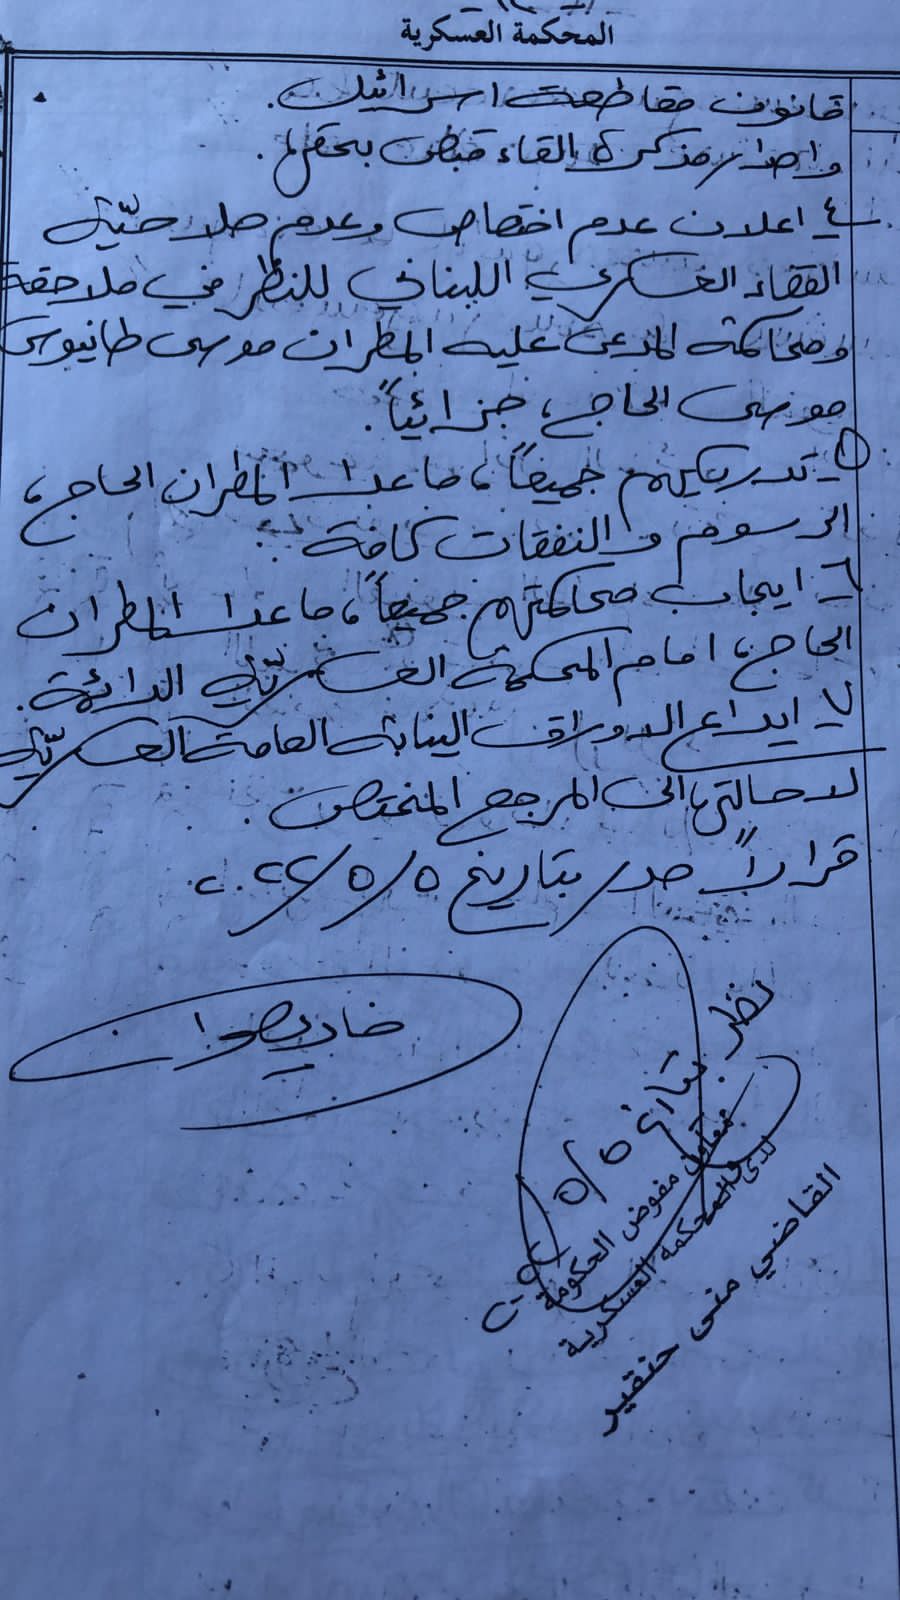 المحكمة العسكرية
قانون مقاطعة اسرائيل.
واصدار مذكرة القاء قبض بحقها.
٤ـ اعلان عدم اختصاص وعدم صلاحيّة
القضاء العسكري اللبناني للنظر في ملاحقة
ومحاكمة المدعى عليه المطران موسى طانيوس
موسى الحاج، جزائياً.
٥ـ تدريكهم جميعاً، ماعدا المطران الحاج،
الرسوم والنفقات كافة.
٦ـ ايجاب محاكمتهم جميعاً، ماعدا المطران
الحاج، امام المحكمة العسكريّة الدائمة.
٧ـ ايداع الاوراق النيابة العامة العسكريّة
لاحالتها الى المرجع المختص.
قراراً صدر بتاريخ ٥/٥/٢٠٢٢
فادي صوان
نظر بتاريخ ٥/٥
معاون مفوض الحكومة
لدى المحكمة العسكرية
القاضي منى حنقير